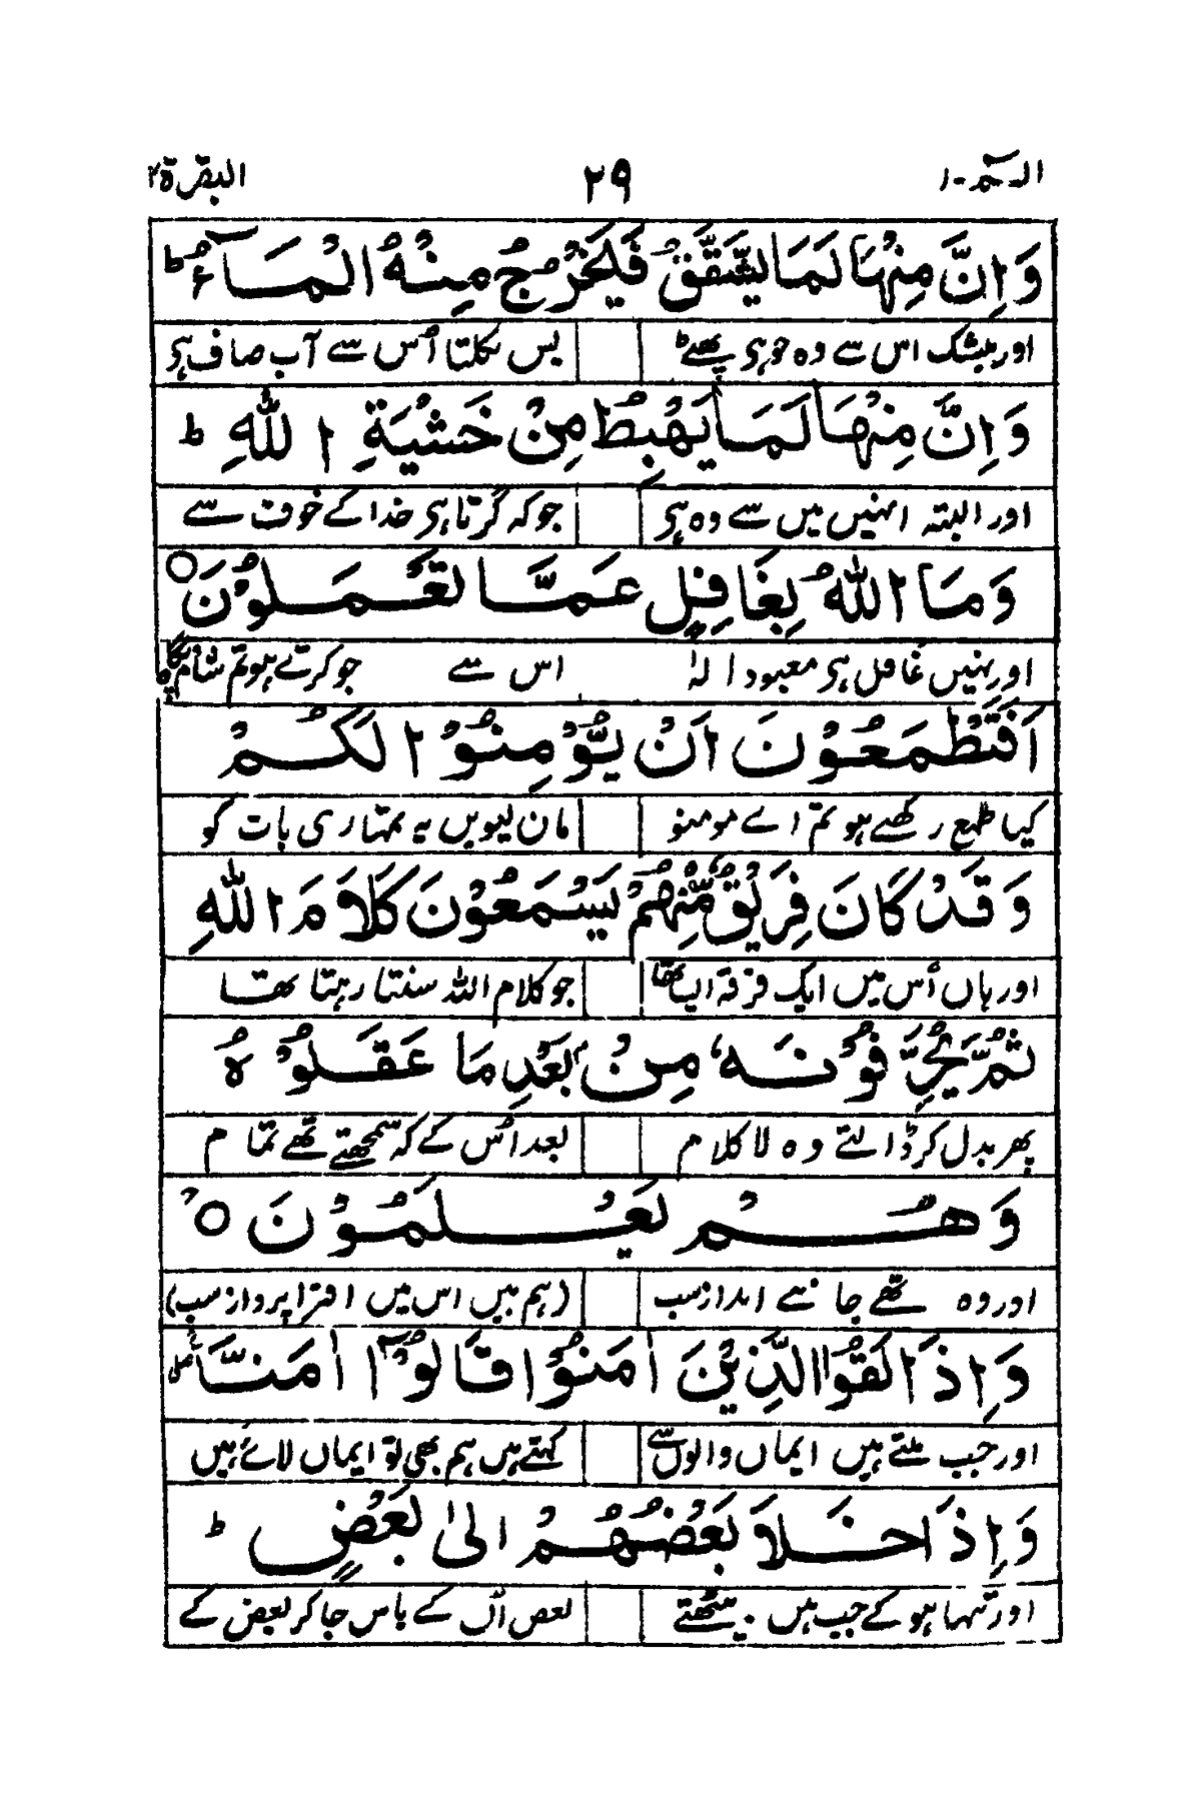 الۤمّۤ-۱ ۲۹ البقرۃ۲
وَاِنَّ مِنْهَا لَمَا يَشَّقَّقُ فَيَخْرُجُ مِنْهُ الْمَآءُ ط
اور بیشک اس سے وہ جو ہری پھٹے پس نکلتا اُس سے آب صاف ہی
وَاِنَّ مِنْهَا لَمَا يَهْبِطُ مِنْ خَشْيَةِ اللّٰهِ ط
اور البتہ انہیں میں سے وہ ہی جو کہ گرتا ہی خدا کے خوف سے
وَمَا اللّٰهُ بِغَافِلٍ عَمَّا تَعْمَلُوْنَ ○
اور نہیں غافل ہی معبود الٰہ اس سے جو کرتے ہو تم
اَفَتَطْمَعُوْنَ اَنْ يُّؤْمِنُوْا لَكُمْ
کیا طمع رکھتے ہو تم اے مومنو مان لیویں یہ تمہاری بات کو
وَقَدْ كَانَ فَرِيْقٌ مِّنْهُمْ يَسْمَعُوْنَ كَلَامَ اللّٰهِ
اور ہاں اُس میں ایک فرقہ ایسا تھا جو کلام اللہ سنتا رہتا تھا
ثُمَّ يُحَرِّفُوْنَهٗ مِنْۢ بَعْدِ مَا عَقَلُوْهُ
پھر بدل کر ڈالتے وہ لا کلام بعد اُس کے کہ سمجھتے تھے تمام
وَهُمْ يَعْلَمُوْنَ ○
اور وہ تھے جانتے انداز سب (ہم ہیں اس میں افترا پرداز سب)
وَاِذَا لَقُوا الَّذِيْنَ اٰمَنُوْا قَالُوْٓا اٰمَنَّا ۖ
اور جب ملتے ہیں ایماں والوں سے کہتے ہیں ہم بھی تو ایماں لائے ہیں
وَاِذَا خَلَا بَعْضُهُمْ اِلٰى بَعْضٍ ط
اور تنہا ہو کے جب ہیں بیٹھتے بعض اُن کے پاس جا کر بعض کے